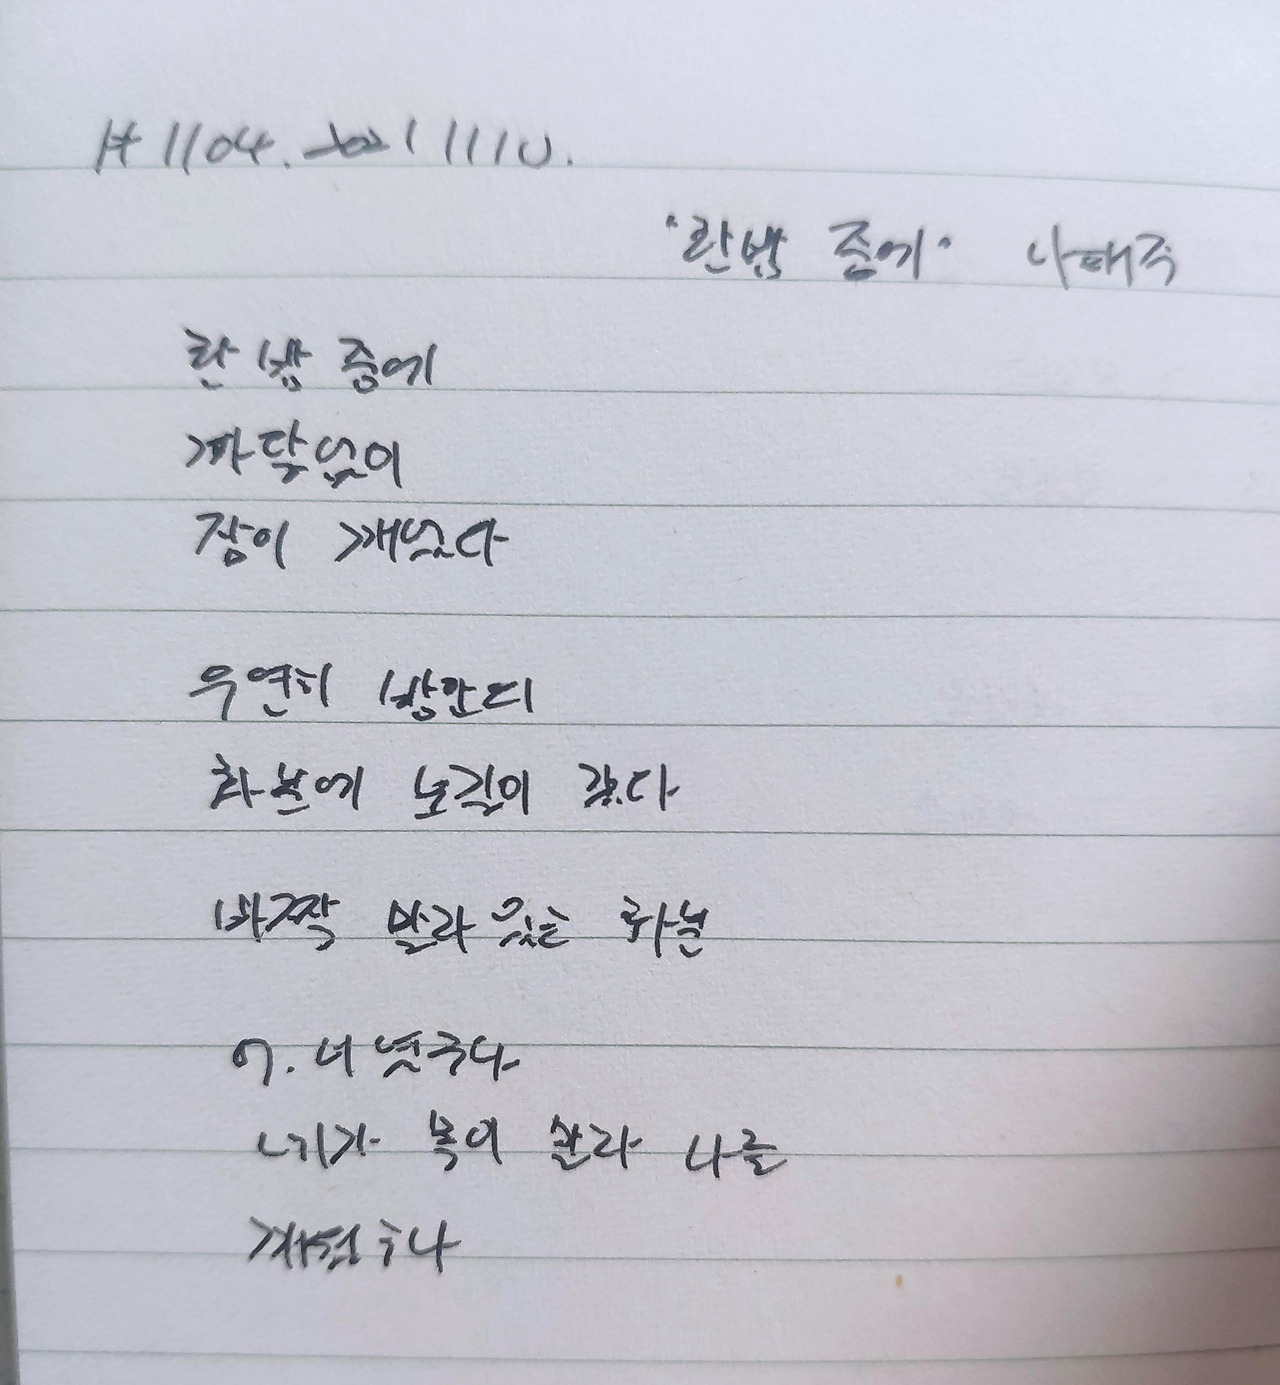 #1104. 20211110.
"한밤 중에" 나태주
한 밤 중에
까닭없이
잠이 깨었다
우연히 방안의
화분에 눈길이 갔다
바짝 말라 있는 화분
어. 너였구나
네가 목이 말라 나를
깨웠구나